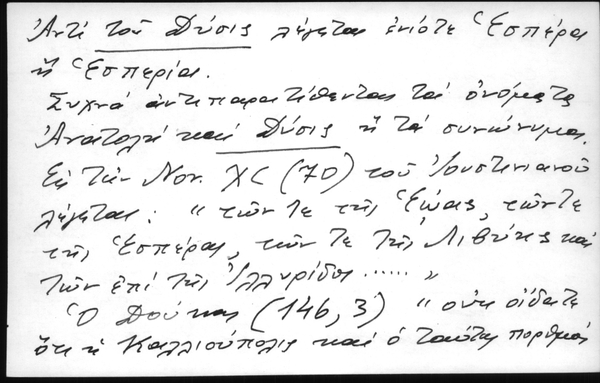 Ἀντί τοῦ Δύσις λέγεται ἐνίοτε Ἑσπέρα
ἤ Ἑσπερία.
Συχνά ἀντιπαρατίθενται τά ὀνόματα
Ἀνατολή καί Δύσις ἤ τά συνώνυμα.
Εἰς τήν Νον. XC (70) τοῦ Ἰουστινιανοῦ
λέγεται: " τῶν τε τῆς Ἑῴας, τῶν τε
τῆς Ἑσπέρας, τῶν τε τῆς Λιβύης καί
τῶν ἐπί τῆς Ἰλλυρίδος ...... "
Ὁ Δούκας (146, 3) " οὐκ οἴδατε
ὅτι ἡ Καλλιούπολις καί ὁ ταύτης πορθμός